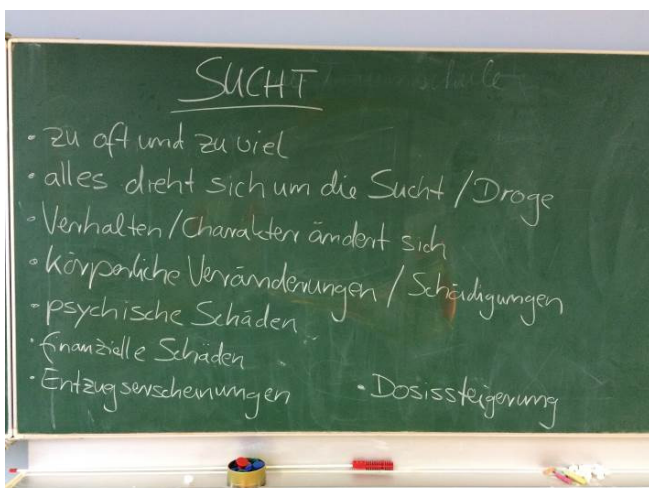 SUCHT
• zu oft und zu viel
• alles dreht sich um die Sucht / Droge
• Verhalten / Charakter ändert sich
• körperliche Veränderungen / Schädigungen
• psychische Schäden
• finanzielle Schäden
• Entzugserscheinungen • Dosissteigerung